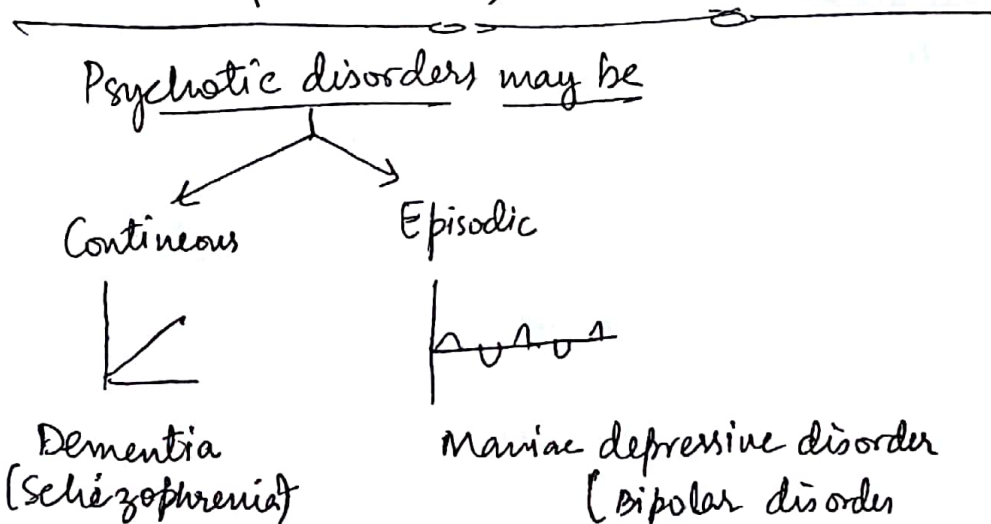 Psychotic disorders may be
Contineous
Episodic
Dementia
(Schizophrenia)
Maniac depressive disorder
(Bipolar disorder